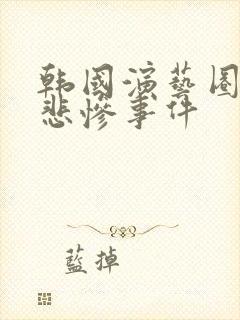 韩國演藝圈
悲慘事件
藍掉